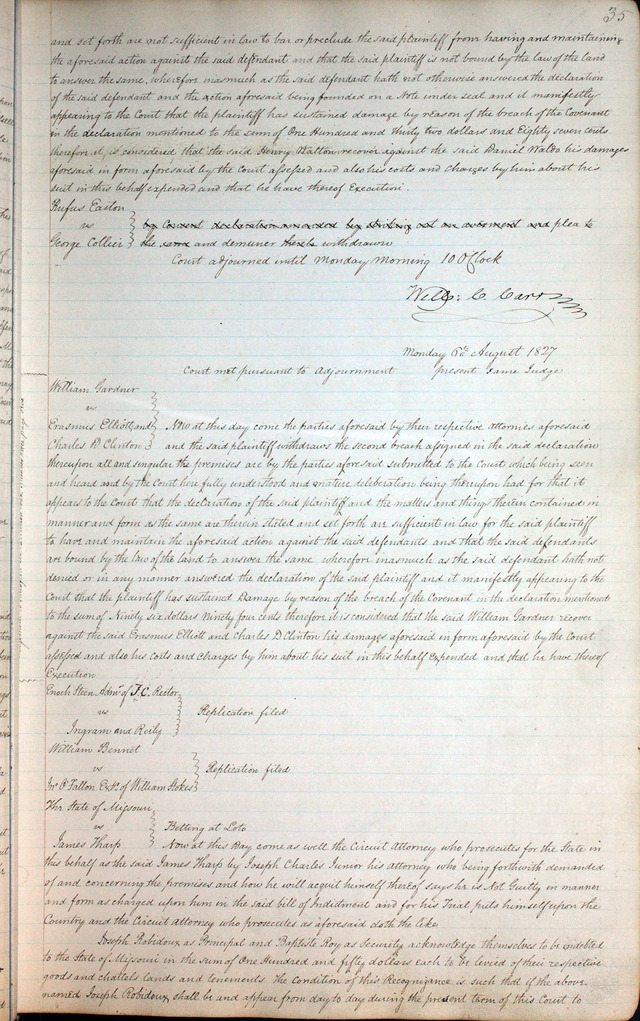 35
and set forth are not sufficient in law to bar or preclude the said plaintiff from having and maintaining
the aforesaid action against the said defendant and that the said plaintiff is not bound by the law of the land
to answer the same, wherefore inasmuch as the said defendant hath not otherwise answered the declaration
of the said defendant and the action aforesaid being founded on a Note under seal and it manifestly
appearing to the Court that the plaintiff has sustained damage by reason of the breach of the Covenant
in the declaration mentioned to the sum of One Hundred and thirty two dollars and Eighty seven cents
therefore it is considered that the said Henry Walton recover against the said Daniel Waldo his damages
aforesaid in form aforesaid by the Court assessed and also his costs and charges by him about his
suit in this behalf expended and that he have thereof Execution.
Rufus Easton
vs by Consent declaration amended by striking out an averment and plea to
George Collier the same and demurrer thereto withdrawn
Court adjourned until Monday Morning 10 OClock
Will: C. Carr
Monday 6th August 1827
Court met pursuant to Adjournment present Same Judge
William Gardner
vs
Erasmus Elliott and Now at this day come the parties aforesaid by their respective attornies aforesaid
Charles D Clinton and the said plaintiff withdraws the second breach assigned in the said declaration
thereupon all and singular the premises are by the parties aforesaid submitted to the Court which being seen
and heard and by the Court here fully understood and mature deliberation being thereupon had for that it
appears to the Court that the declaration of the said plaintiff and the matters and things therein contained in
manner and form as the same are therein stated and set forth are sufficient in law for the said plaintiff
to have and maintain the aforesaid action against the said defendants and that the said defendants
are bound by the law of the land to answer the same wherefore inasmuch as the said defendant hath not
denied or in any manner answered the declaration of the said plaintiff and it manifestly appearing to the
Court that the plaintiff has sustained Damage by reason of the breach of the Covenant in the declaration mentioned
to the sum of Ninety six dollars Ninety four cents therefore it is considered that the said William Gardner recover
against the said Erasmus Elliott and Charles D Clinton his damages aforesaid in form aforesaid by the Court
assessed and also his costs and charges by him about his suit in this behalf expended and that he have thereof
Execution
Enoch Steen Admr of T. C. Rector
vs Replication filed
Ingram and Reily
William Bennet
vs Replication filed
Jno O Fallon Exr. of William Stokes
The State of Missouri
vs Betting at Loto
James Tharp Now at this Day come as well the Circuit Attorney who prosecutes for the State in
this behalf as the said James Tharp by Joseph Charles Junior his Attorney who being forthwith demanded
of and concerning the premises and how he will acquit himself thereof says he is Not Guilty in manner
and form as charged upon him in the said bill of Indictment and for his Trial puts himself upon the
Country and the Circuit Attorney who prosecutes as aforesaid doth the like
Joseph Robidoux as Principal and Baptiste Roy as Security acknowledge themselves to be indebted
to the State of Missouri in the sum of One Hundred and fifty dollars each to be levied of their respective
goods and chattels lands and tenements. The Condition of this Recognizance is such that if the above
named Joseph Robidoux shall be and appear from day to day during the present term of this Court to